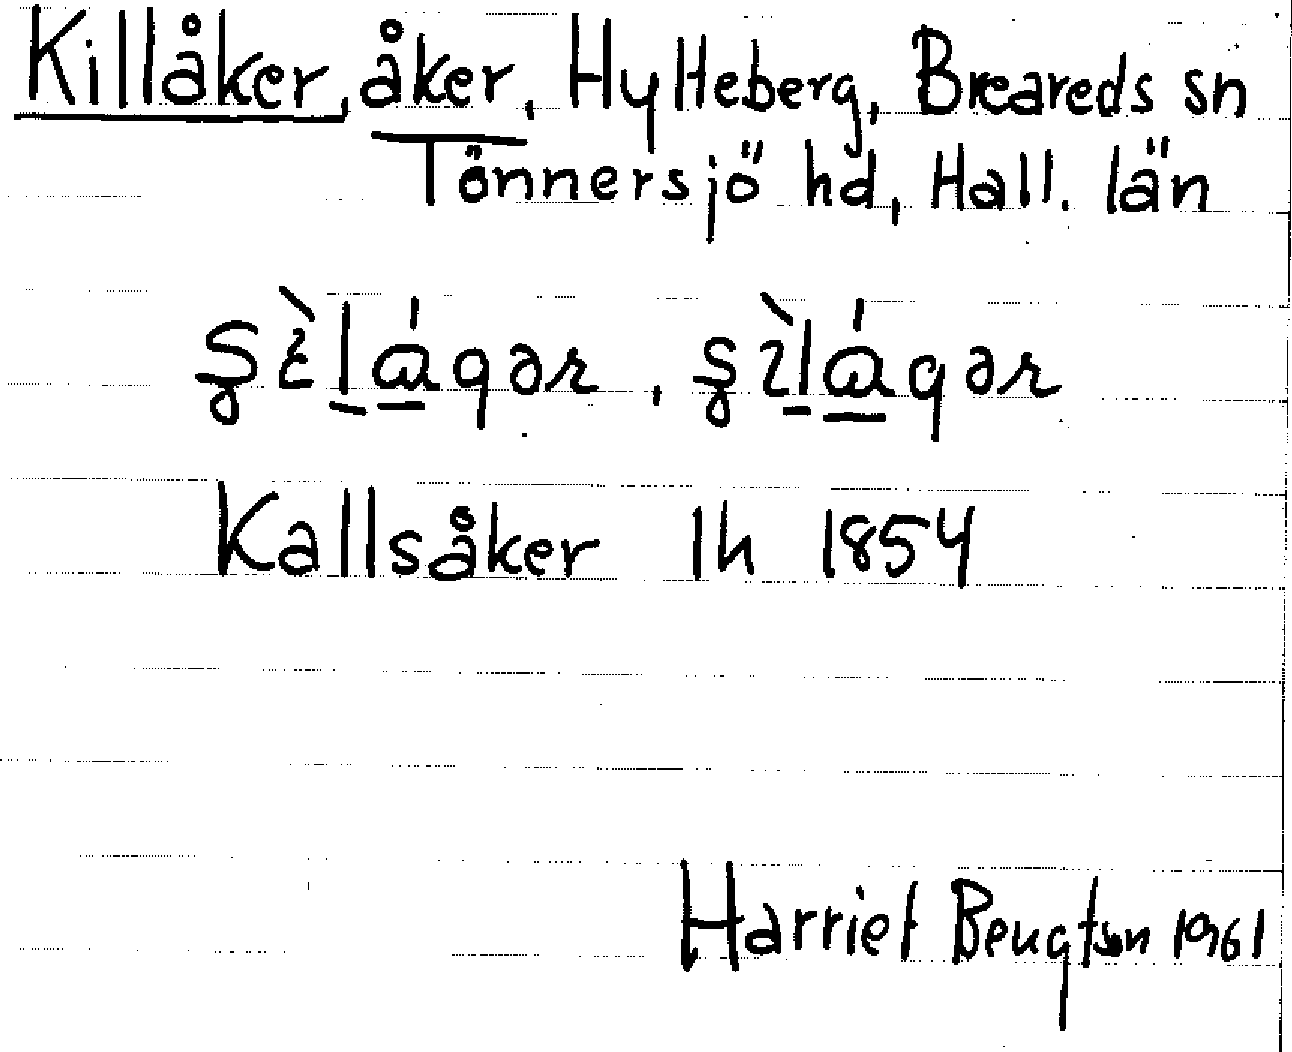 Killåker, åker, Hylteberg, Breareds sn
Tönnersjö hd, Hall. län
Kallsåker lh 1854
Harriet Bengtson 1961